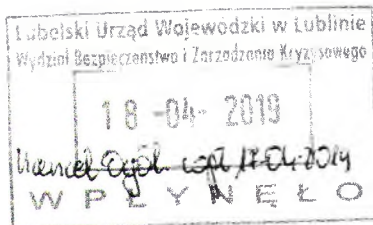 Lubelski Urząd Wojewódzki w Lublinie
Wydział Bezpieczeństwa i Zarządzania Kryzysowego
18 -04- 2019
WPŁYNĘŁO